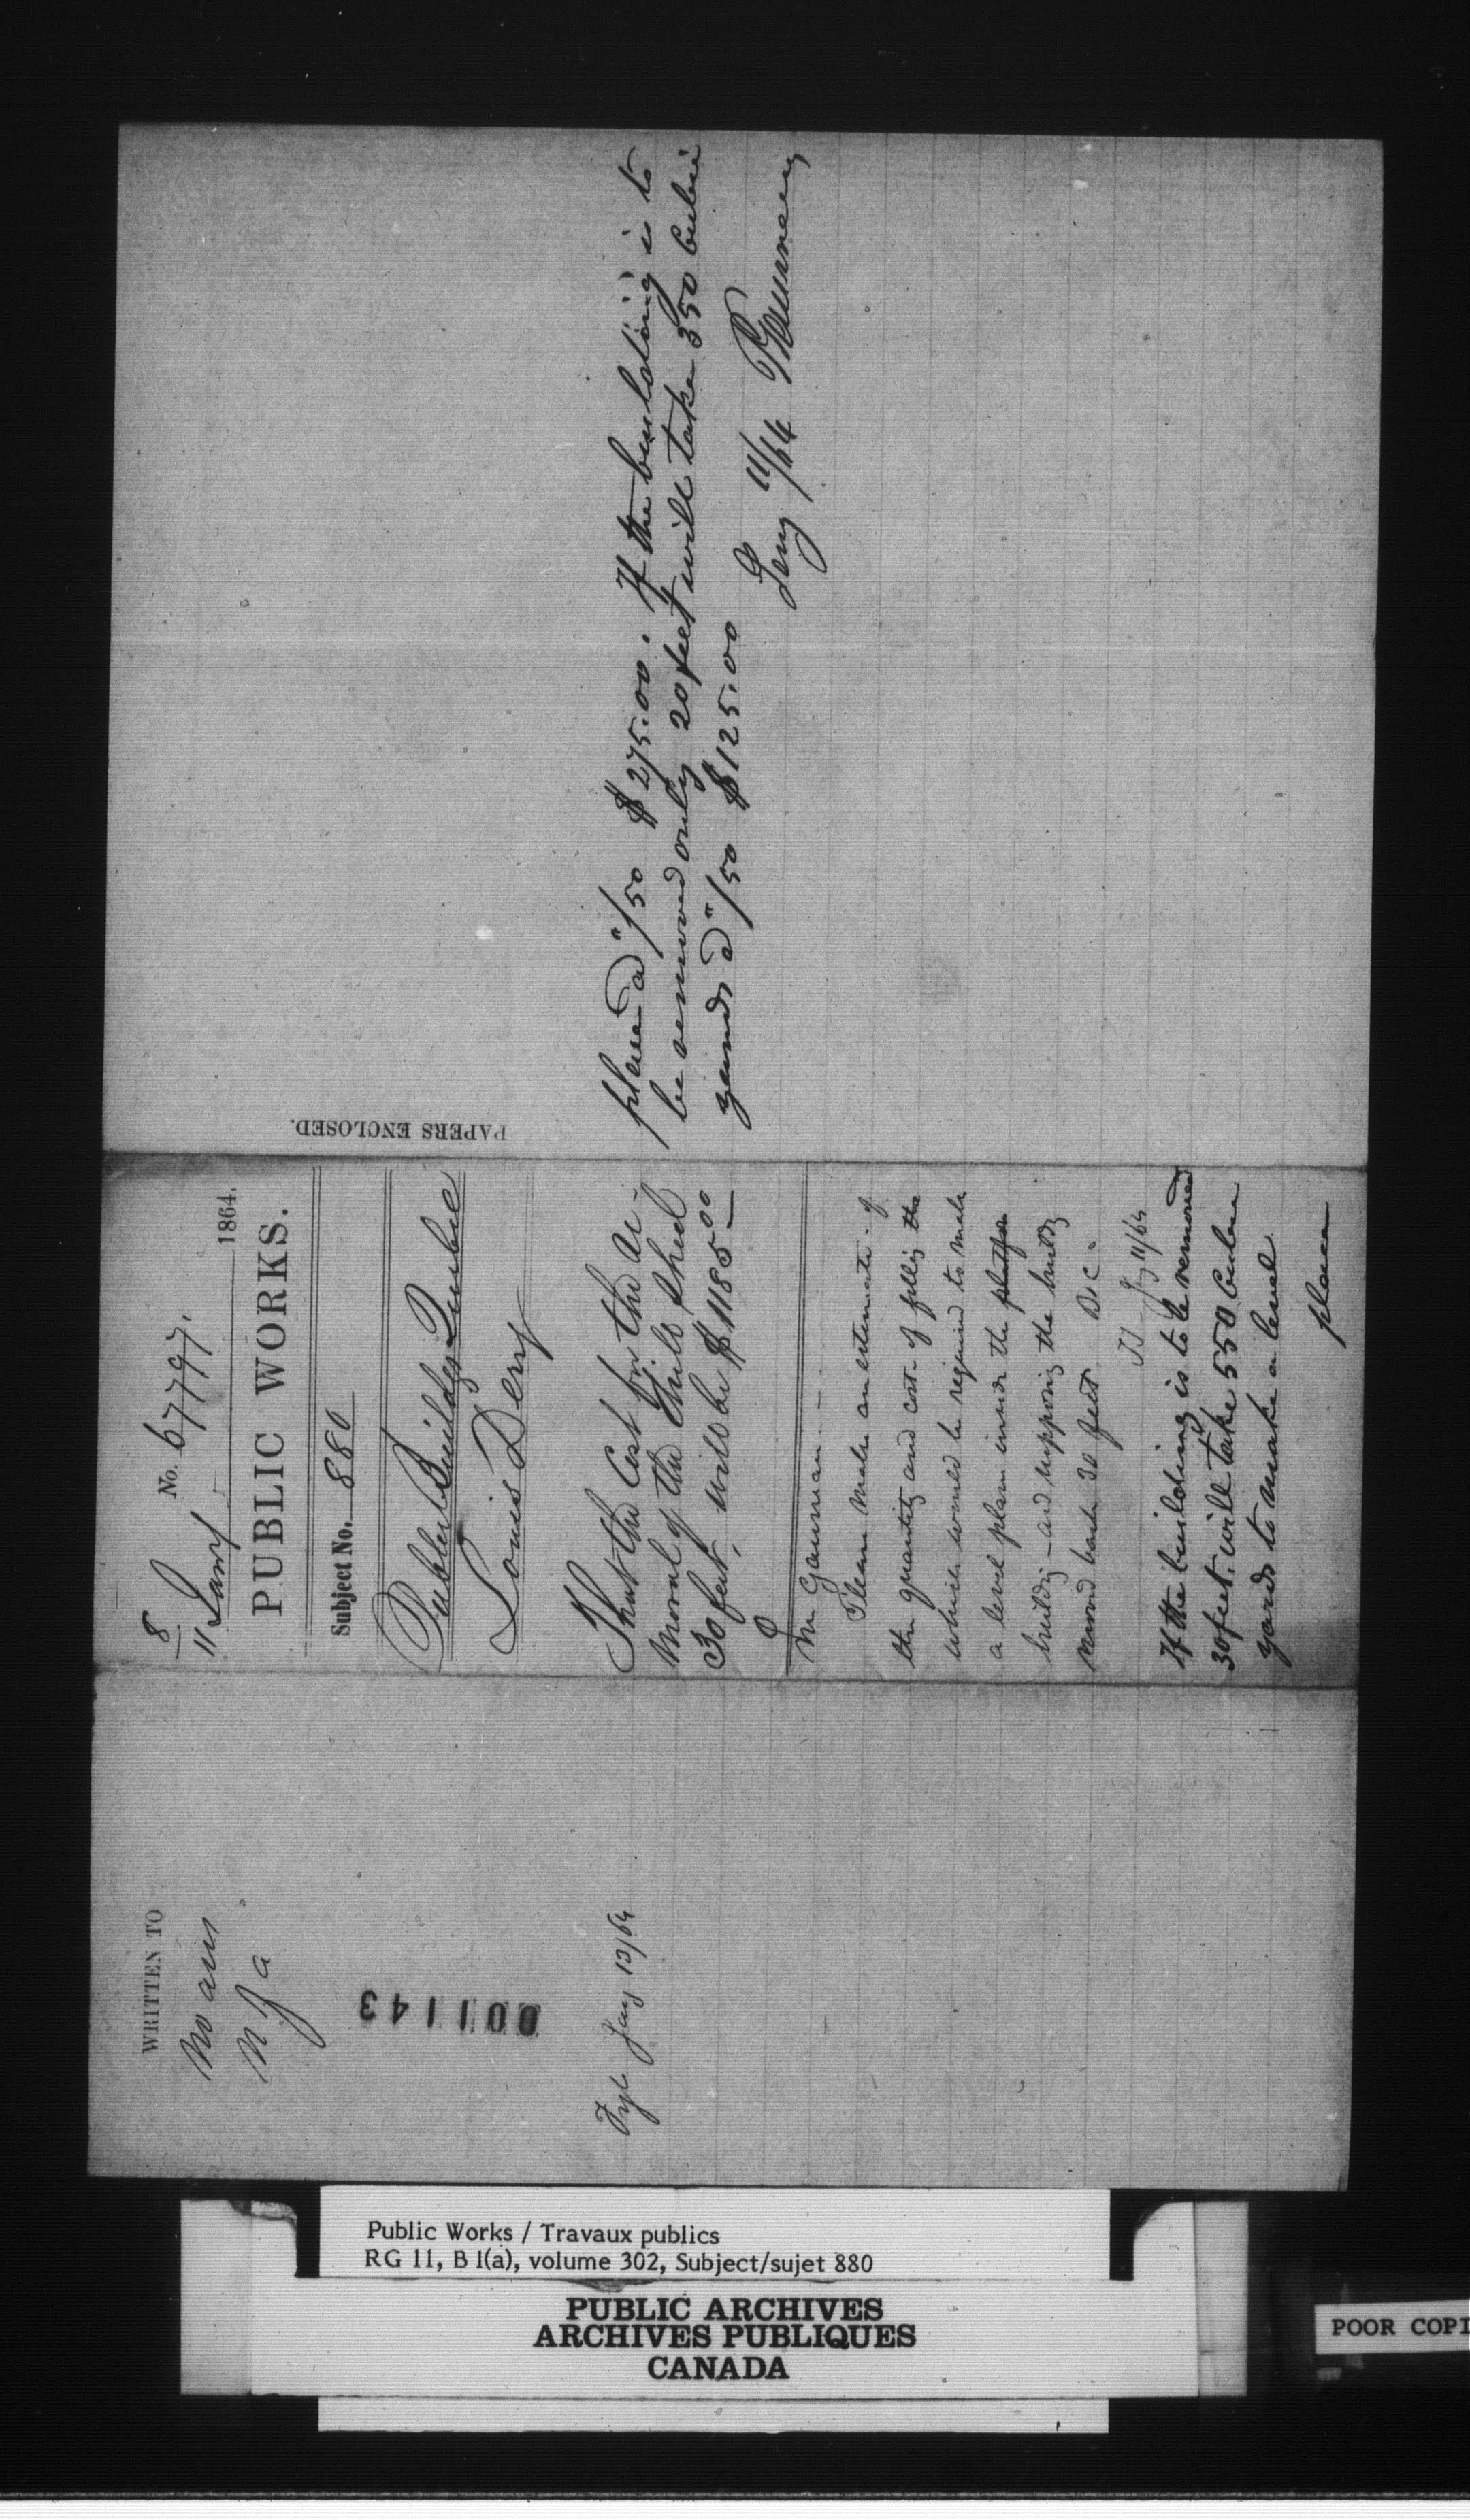 WRITTEN TO
no ans
n f a
001143
Fyle Jany 13/64
8
11 Jany No. 67797. 1864.
PUBLIC WORKS.
Subject No. 880
Public Buildgs Quebec
Louis Dery
That the Cost for the re-
moval of the Drill Shed
30 feet, will be $1185 00
Mr Gauvreau —
Please make an estimate of
the quantity and cost of filling the
which would be required to make
a level place inside the
building — and supposing the buildg
moved back 30 feet
Jy 11/64
If the building is to be removed
30 feet. will take 550 cubic
yards to make a level
place
PAPERS ENCLOSED.
place a "/50 $275.00. If the building is to
be removed only 20 feet will take 350 cubic
yards a "/50 $125.00
Jany 11/64
Public Works / Travaux publics
RG 11, B 1(a), volume 302, Subject/sujet 880
PUBLIC ARCHIVES
ARCHIVES PUBLIQUES
CANADA
POOR COPI